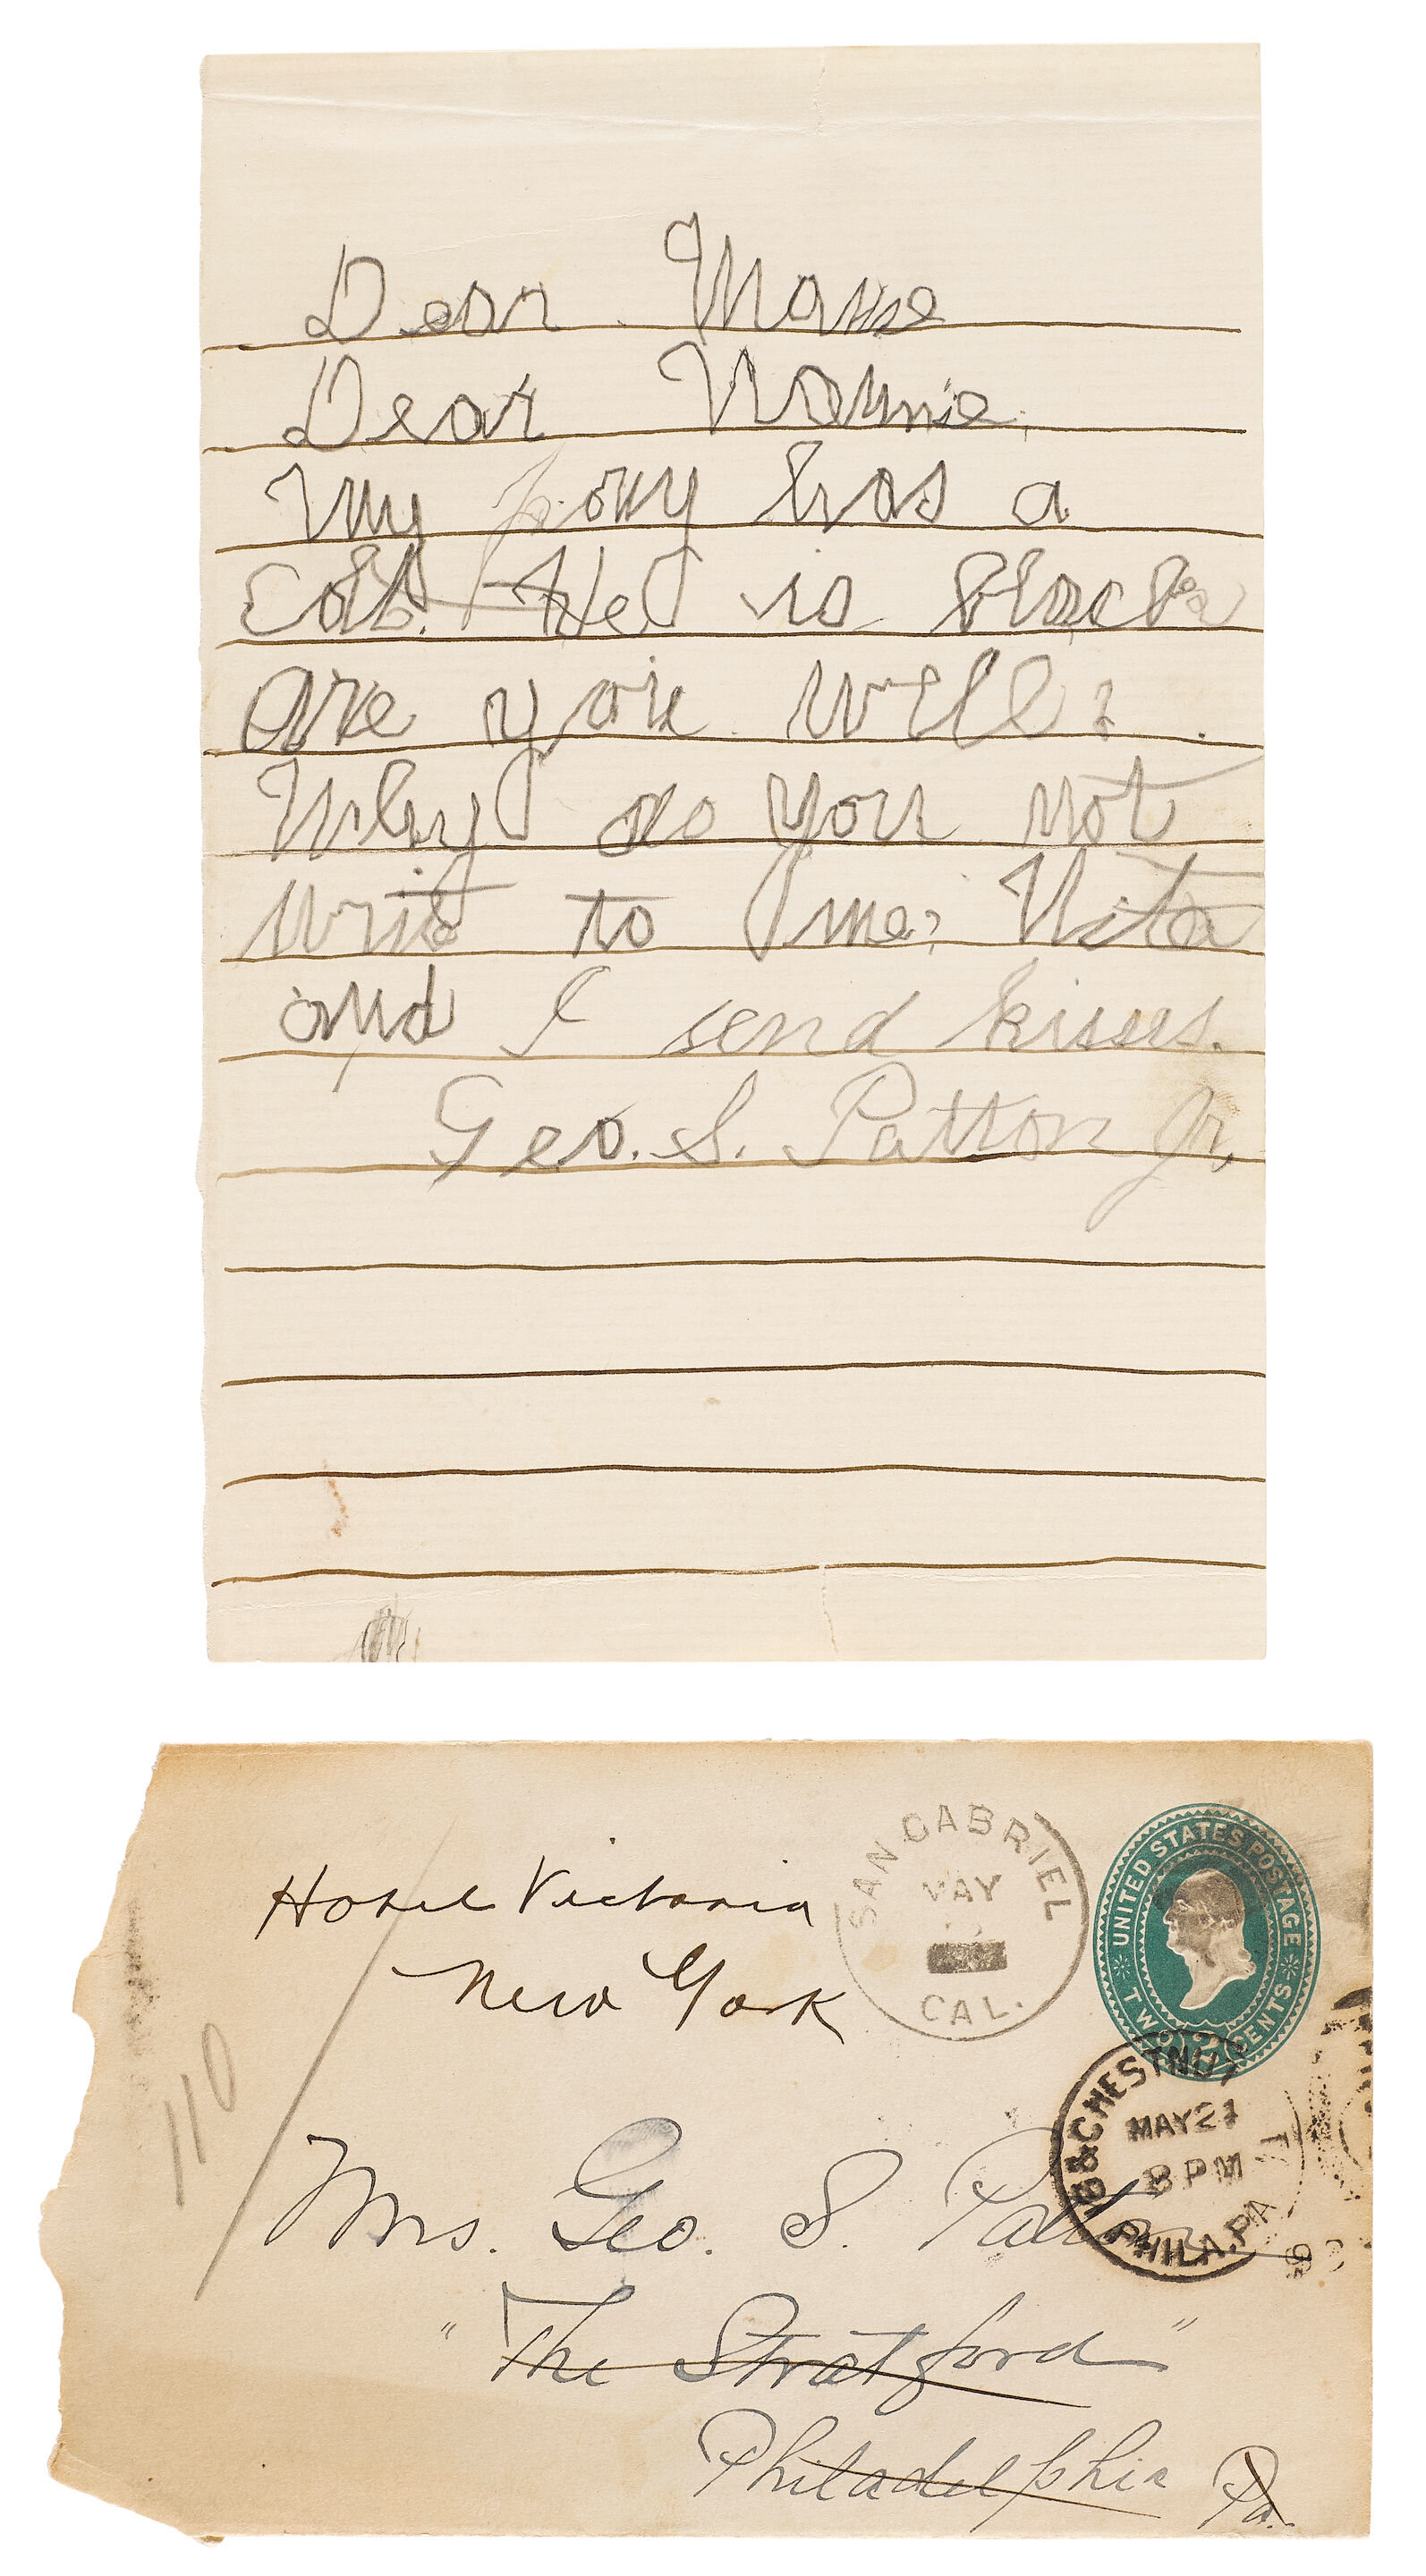 Dear
Dear Nannie
My pony has a
Colt. He is black
are you well?
Why do you not
write to me? Nita
and I send kisses.
Geo. S. Patton Jr.
Hotel Victoria
New York
SAN GABRIEL
MAY
CAL.
UNITED STATES POSTAGE
TWO CENTS
CHESTNUT
MAY 21
8 PM
PHILA. PA
110
Mrs. Geo. S. Patton
"The Stratford"
Philadelphia Pa.